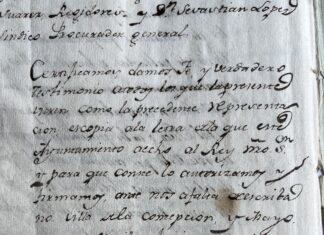 Suarez Regidores, y Dn. Sevastian Lopez
Sindico Procurador general.
Certificamos damos Fe y verdadero
testimonio a todos los que la presente
vieren como la precedente representa
cion es copia a la letra de la que este
Ayuntamiento a echo al Rey nro. Sr.
y para que conste lo autorizamos y
firmamos, ante nos a falta de escriba
no. Villa de la Concepcion, y Mayo